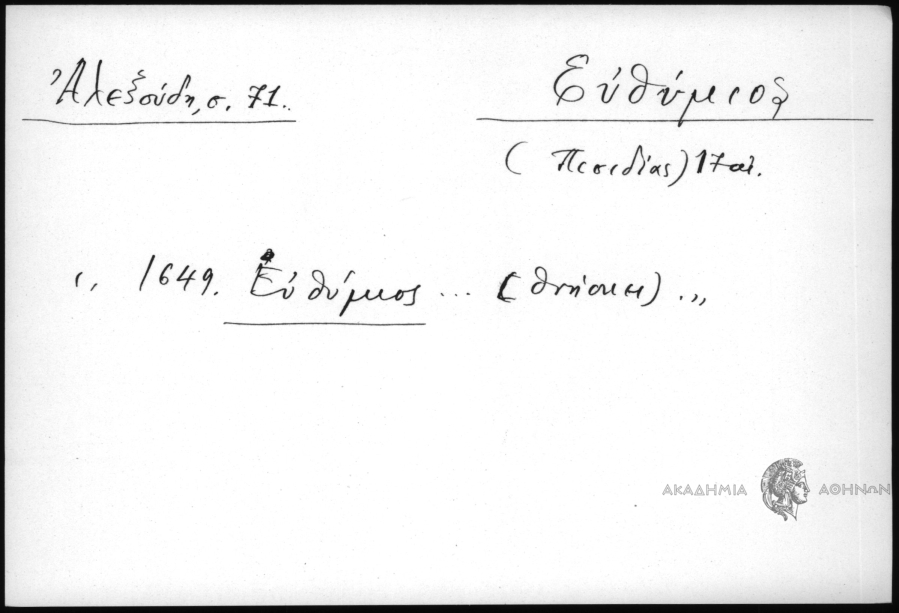 Ἀλεξούδη, σ. 71.
Εὐθύμιος
(Πισιδίας) 17 αἰ.
,, 1649. Εὐθύμιος ... (θνήσκει) .,,
ΑΚΑΔΗΜΙΑ ΑΘΗΝΩΝ